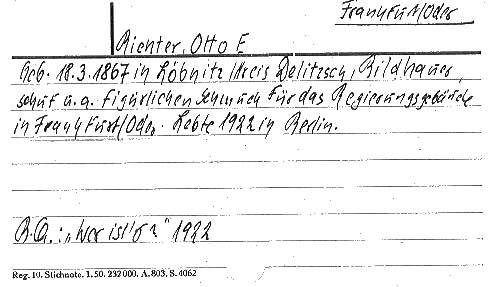 Frankfurt/Oder
Richter, Otto E
Geb. 18.3.1867 in Löbnitz/Kreis Delitzsch, Bildhauer,
schuf u.a. figürlichen Schmuck für das Regierungsgebäude
in Frankfurt/Oder. Lebte 1922 in Berlin.
"Wer ist's?" 1922
Reg. 10. Stichnote. 1. 50. 232 000. A. 803. S. 4062